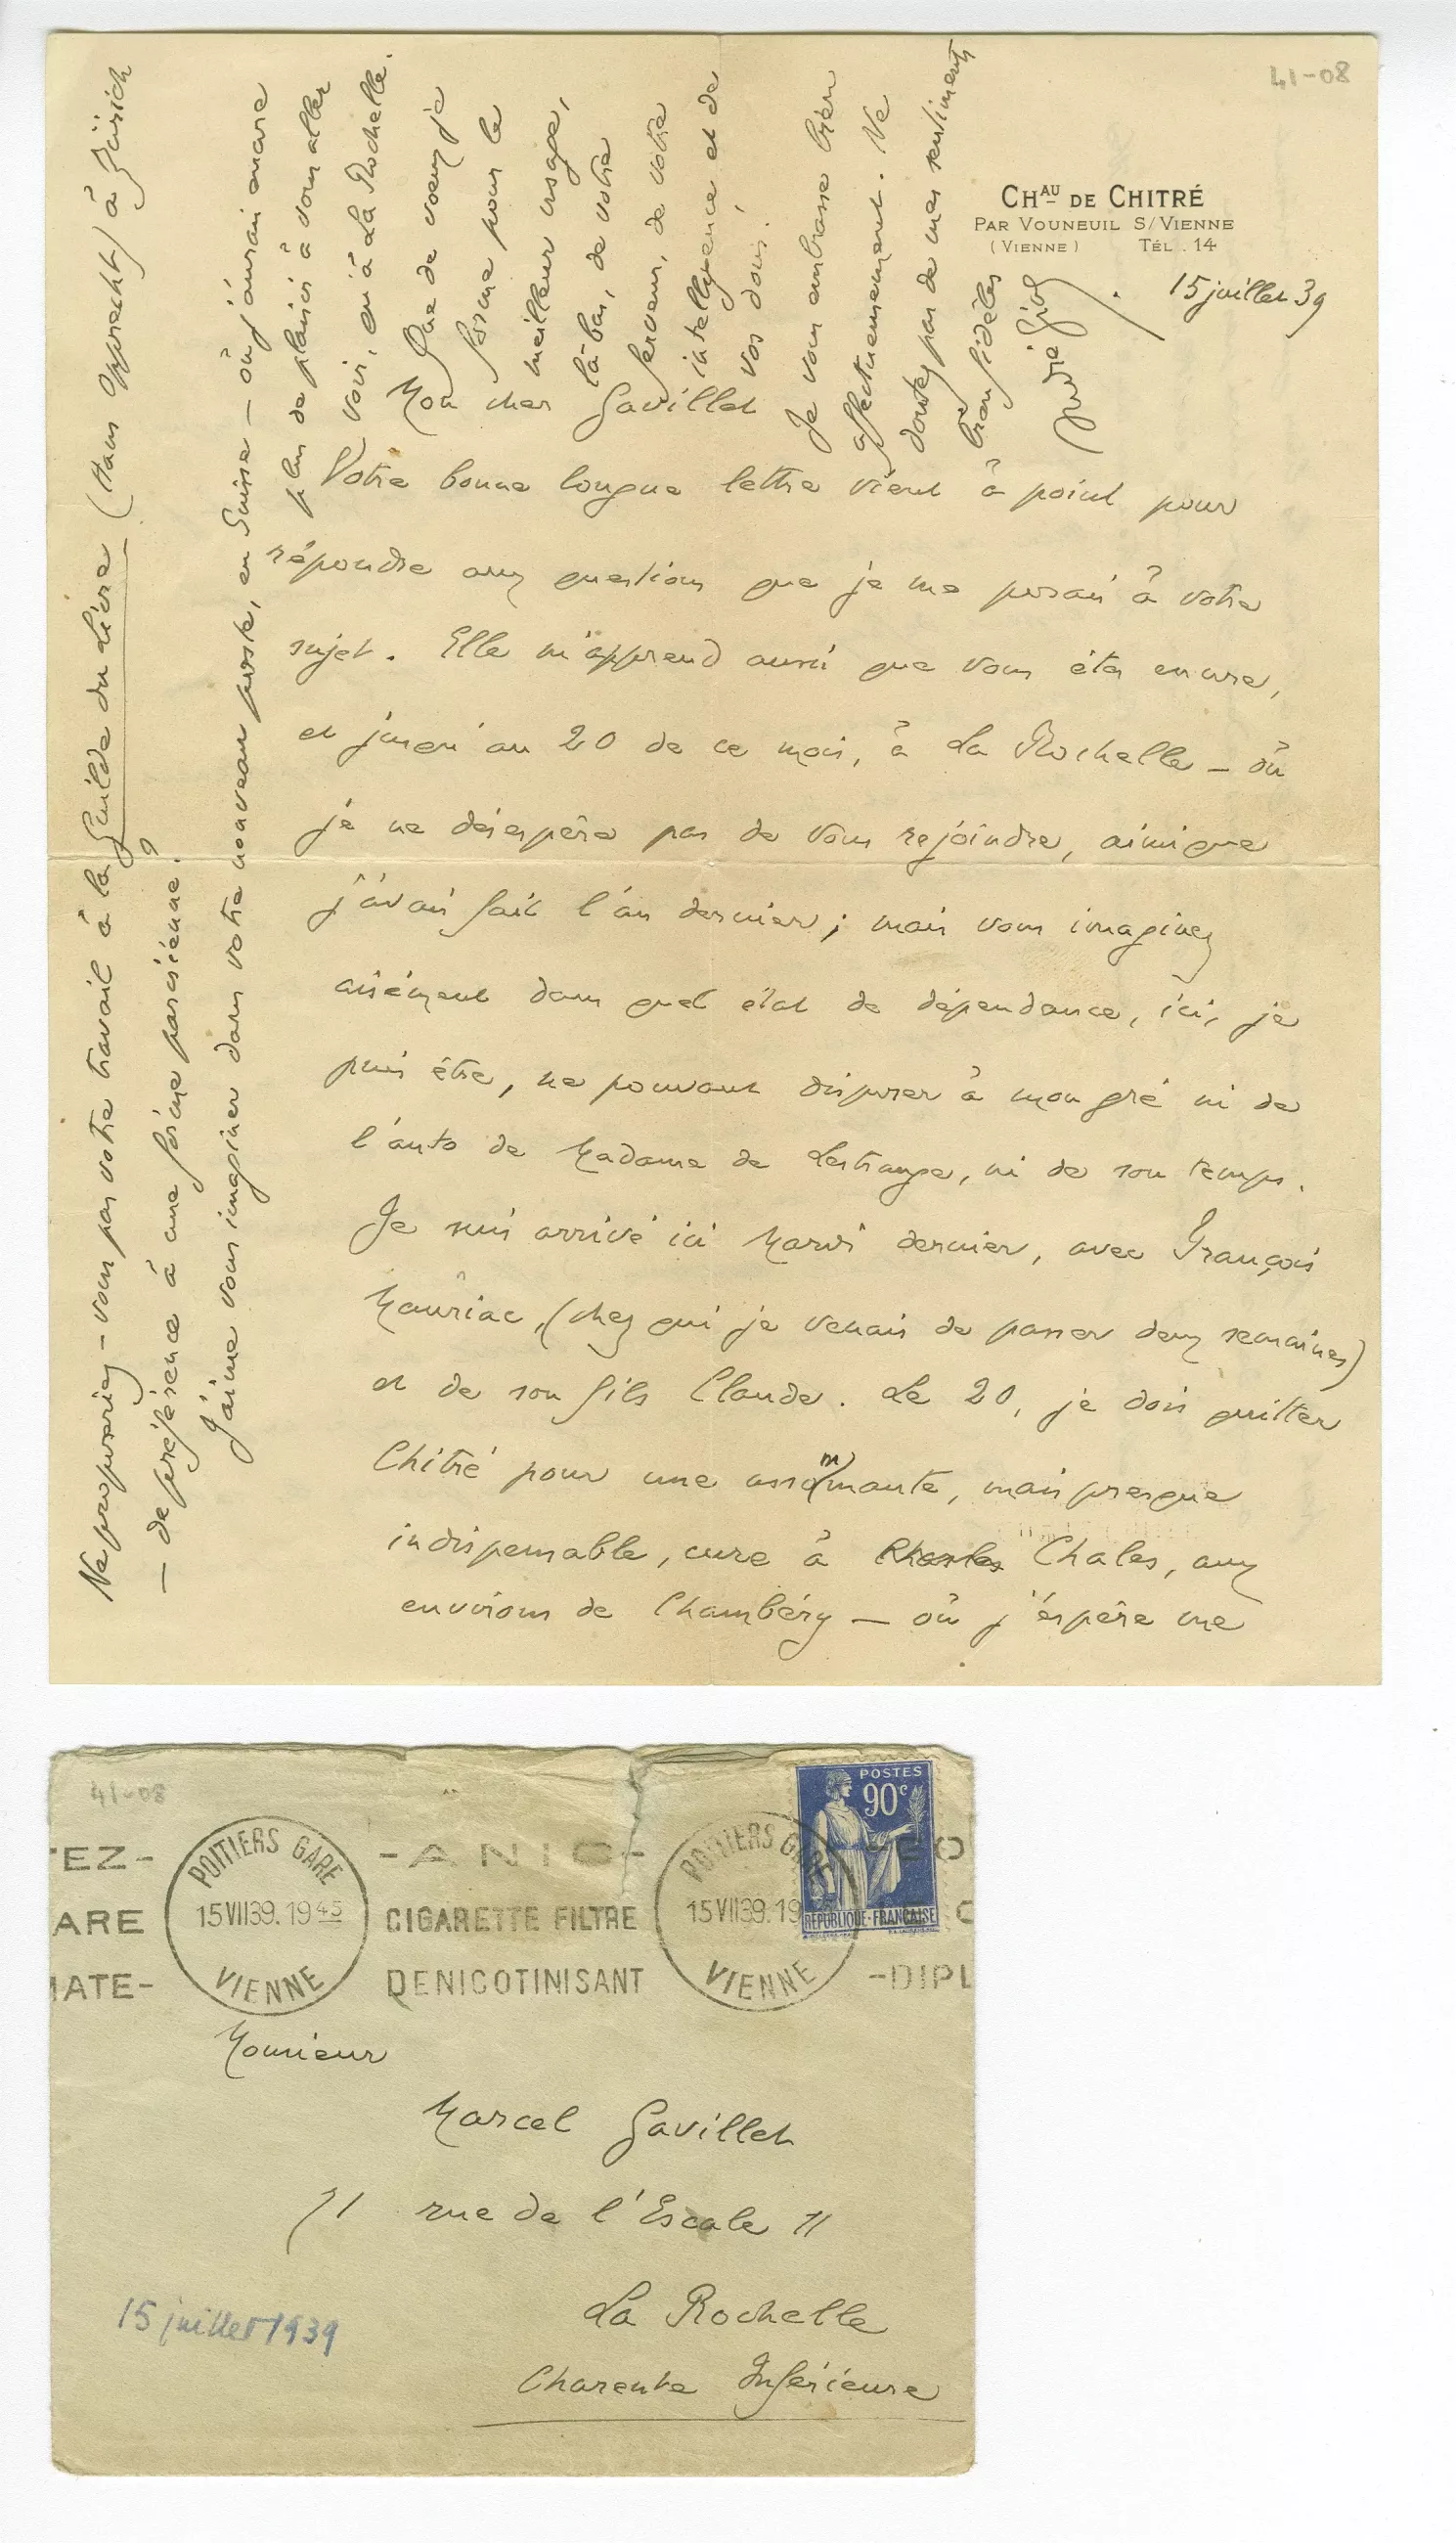 41-08
CHAU DE CHITRÉ
PAR VOUNEUIL S/VIENNE
(VIENNE) TÉL. 14
15 juillet 39
Mon cher Gavillet
Votre bonne longue lettre vient à point pour
répondre aux questions que je me posais à votre
sujet. Elle m'apprend aussi que vous êtes encore,
et jusqu'au 20 de ce mois, à La Rochelle – où
je ne désespère pas de vous rejoindre, ainsi que
j'avais fait l'an dernier ; mais vous imaginez
aisément dans quel état de dépendance, ici, je
puis être, ne pouvant disposer à mon gré ni de
l'auto de Madame de Lestrange, ni de son temps.
Je suis arrivé ici Mardi dernier, avec François
Mauriac, (chez qui je venais de passer deux semaines)
et de son fils Claude. Le 20, je dois quitter
Chitré pour une assommante, mais presque
indispensable, cure à Charles Chales, aux
environs de Chambéry – où j'espère me
Ne pourriez-vous pas votre travail à la Guilde du Livre (Hans Opprecht) à Zürich
– de préférence à une firme parisienne ?
J'aime vous imaginer dans votre nouveau poste, en Suisse – où j'aurais encore
plus de plaisir à vous aller
voir, qu'à La Rochelle.
Que de voeux je
forme pour le
meilleur usage,
là-bas, de votre
ferveur, de votre
intelligence et de
vos dons !
Je vous embrasse bien
affectueusement. Ne
doutez pas de mes sentiments
bien fidèles
André Gide
41-08
TEZ- -ANIC- ECO
ARE CIGARETTE FILTRE C
MATE- DENICOTINISANT -DIPL
POITIERS GARE
15 VII 39. 19 45
VIENNE
POITIERS GARE
15 VII 39. 19
VIENNE
POSTES
90c
RÉPUBLIQUE-FRANÇAISE
Monsieur
Marcel Gavillet
11 rue de l'Escale 11
La Rochelle
Charente Inférieure
15 juillet 1939